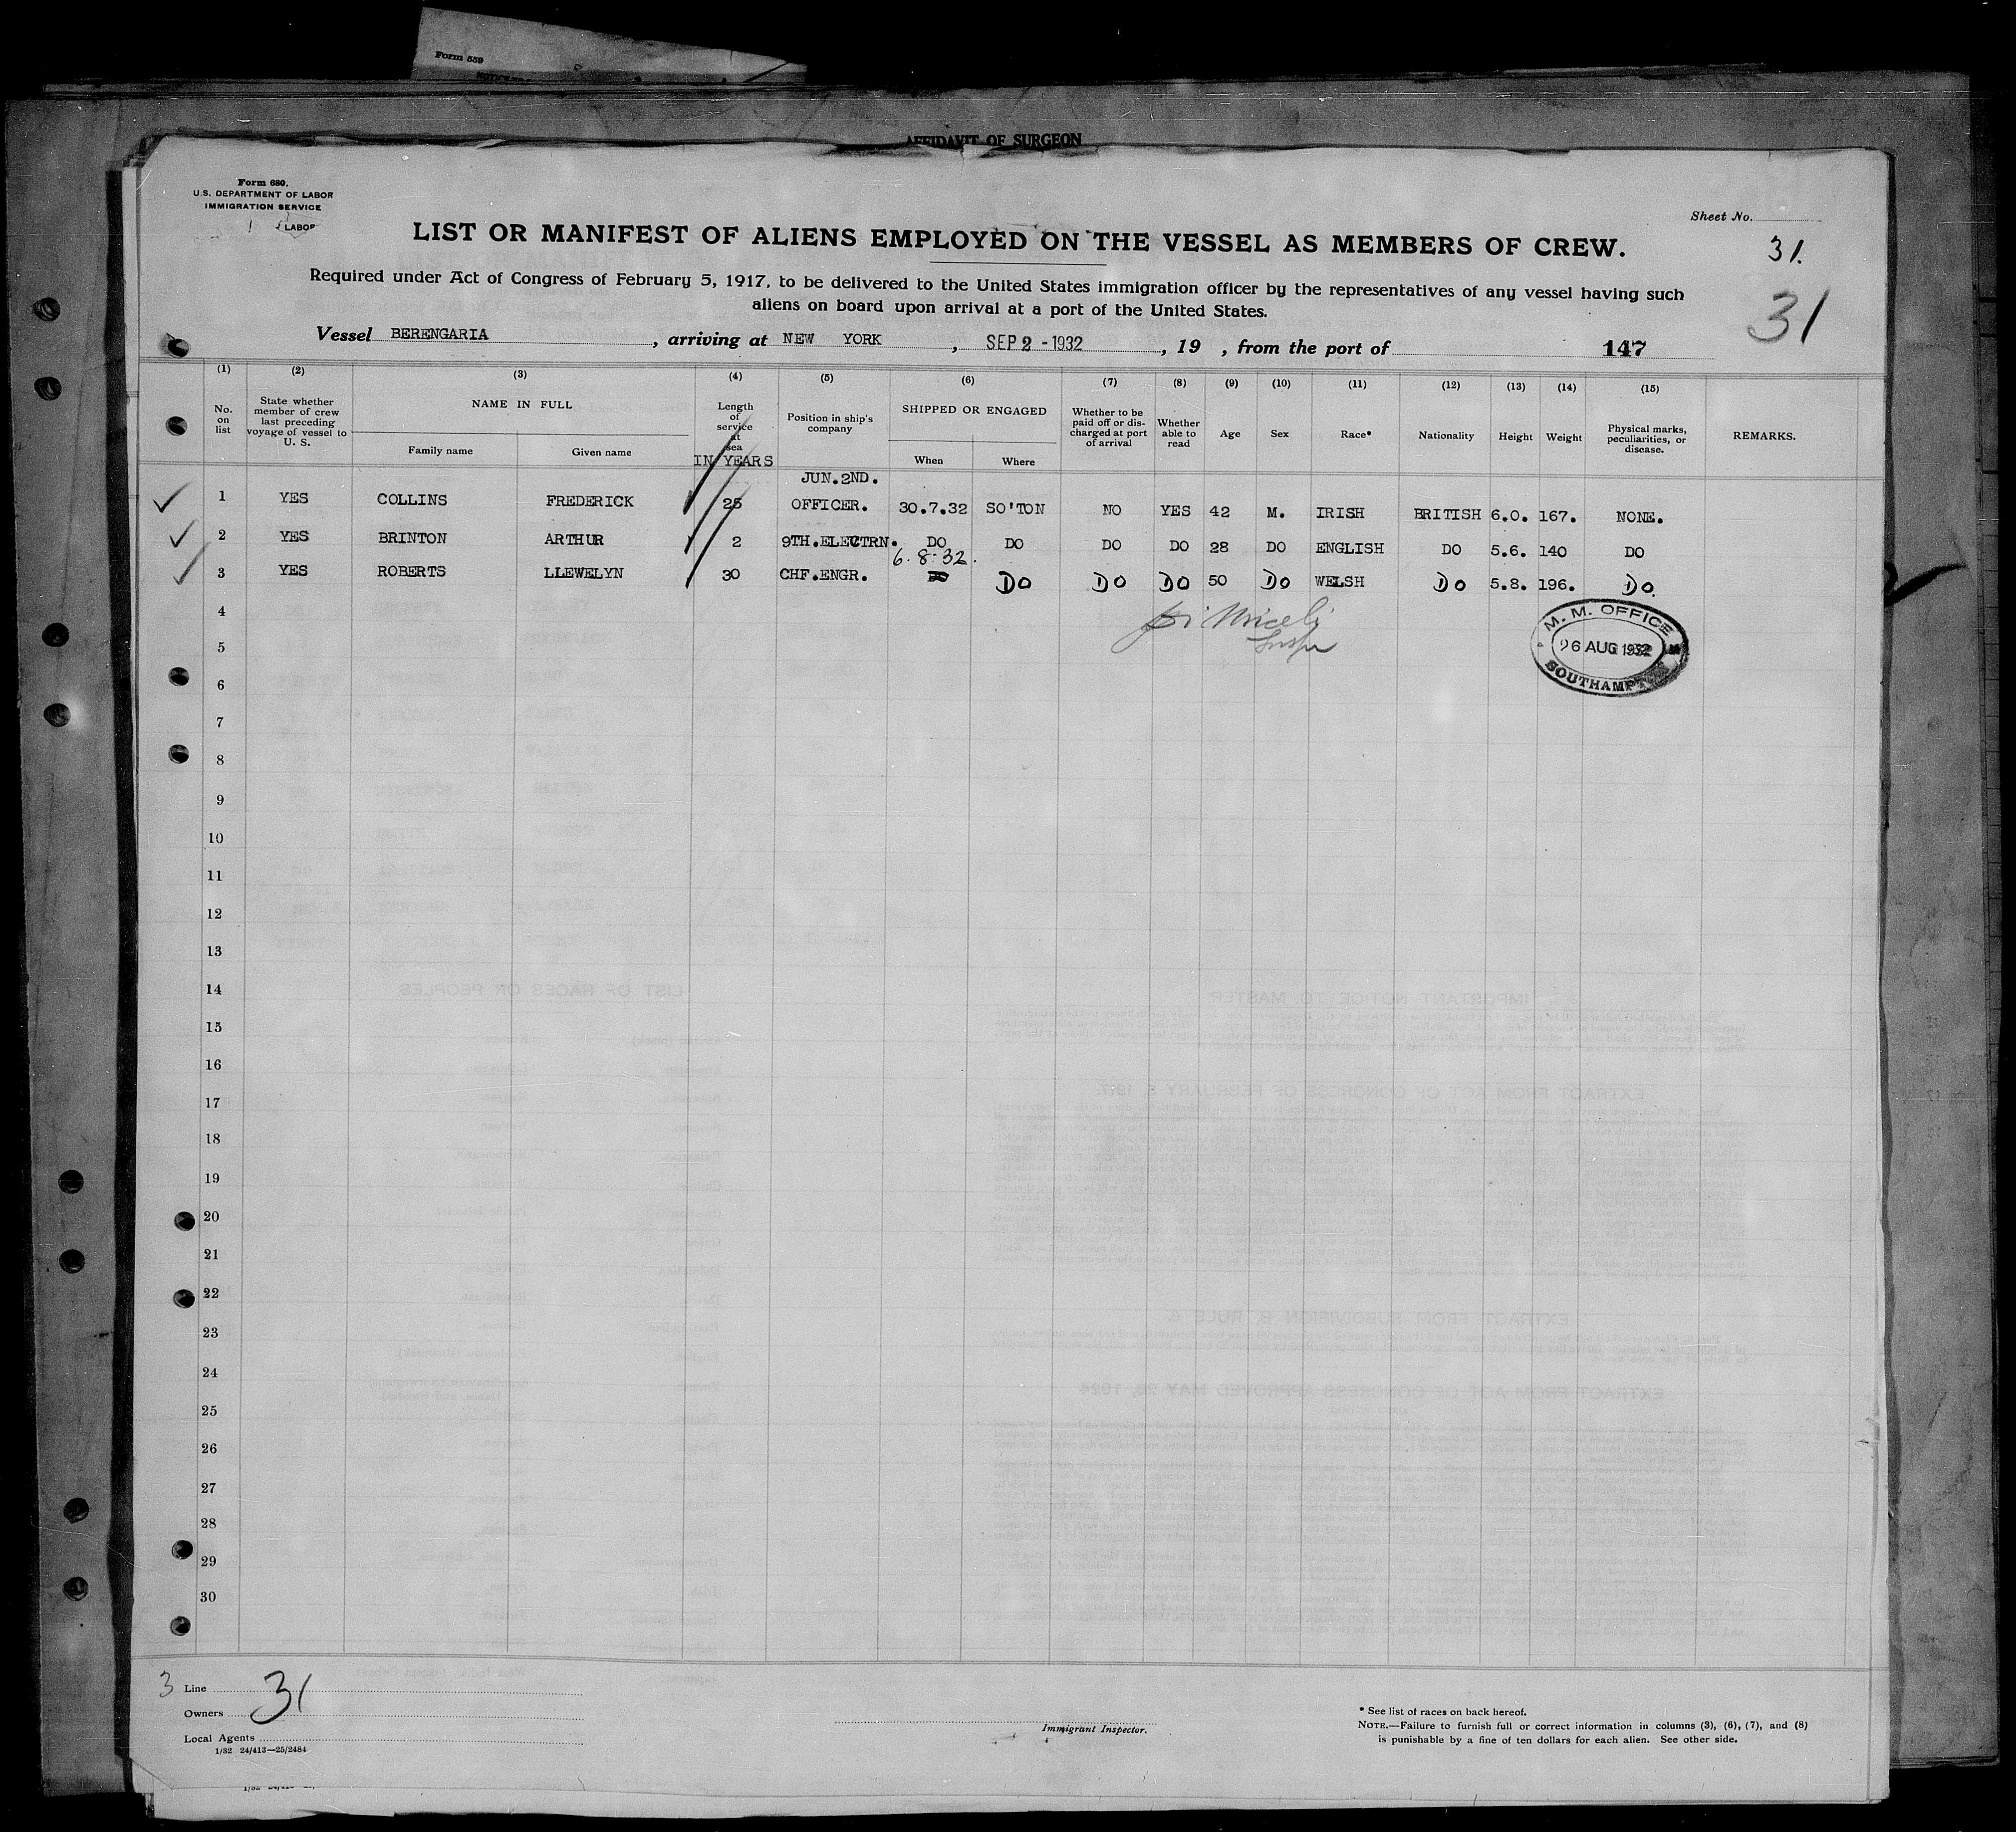 Form 559
AFFIDAVIT OF SURGEON
Form 680.
U.S. DEPARTMENT OF LABOR
IMMIGRATION SERVICE
LABOR
Sheet No.
31.
31
LIST OR MANIFEST OF ALIENS EMPLOYED ON THE VESSEL AS MEMBERS OF CREW.
Required under Act of Congress of February 5, 1917, to be delivered to the United States immigration officer by the representatives of any vessel having such
aliens on board upon arrival at a port of the United States.
Vessel BERENGARIA, arriving at NEW YORK, SEP 2 - 1932, 19 , from the port of 147
(1) (2) (3) (4) (5) (6) (7) (8) (9) (10) (11) (12) (13) (14) (15)
No. on list
State whether member of crew last preceding voyage of vessel to U. S.
NAME IN FULL
Family name
Given name
Length of service at sea
IN YEARS
Position in ship's company
SHIPPED OR ENGAGED
When
Where
Whether to be paid off or discharged at port of arrival
Whether able to read
Age
Sex
Race*
Nationality
Height
Weight
Physical marks, peculiarities, or disease.
REMARKS.
JUN.2ND.
1 YES COLLINS FREDERICK 25 OFFICER. 30.7.32 SO'TON NO YES 42 M. IRISH BRITISH 6.0. 167. NONE.
2 YES BRINTON ARTHUR 2 9TH.ELECTRN. DO DO DO DO 28 DO ENGLISH DO 5.6. 140 DO
6.8.32.
3 YES ROBERTS LLEWELYN 30 CHF.ENGR. DO DO DO DO 50 DO WELSH DO 5.8. 196. DO.
4
5
M. M. OFFICE
26 AUG 1932
SOUTHAMPTON
6
7
8
9
10
11
12
13
14
15
16
17
18
19
20
21
22
23
24
25
26
27
28
29
30
3 Line
31
Owners
Local Agents
1/32 24/413—25/2484
Immigrant Inspector.
* See list of races on back hereof.
NOTE.—Failure to furnish full or correct information in columns (3), (6), (7), and (8)
is punishable by a fine of ten dollars for each alien. See other side.